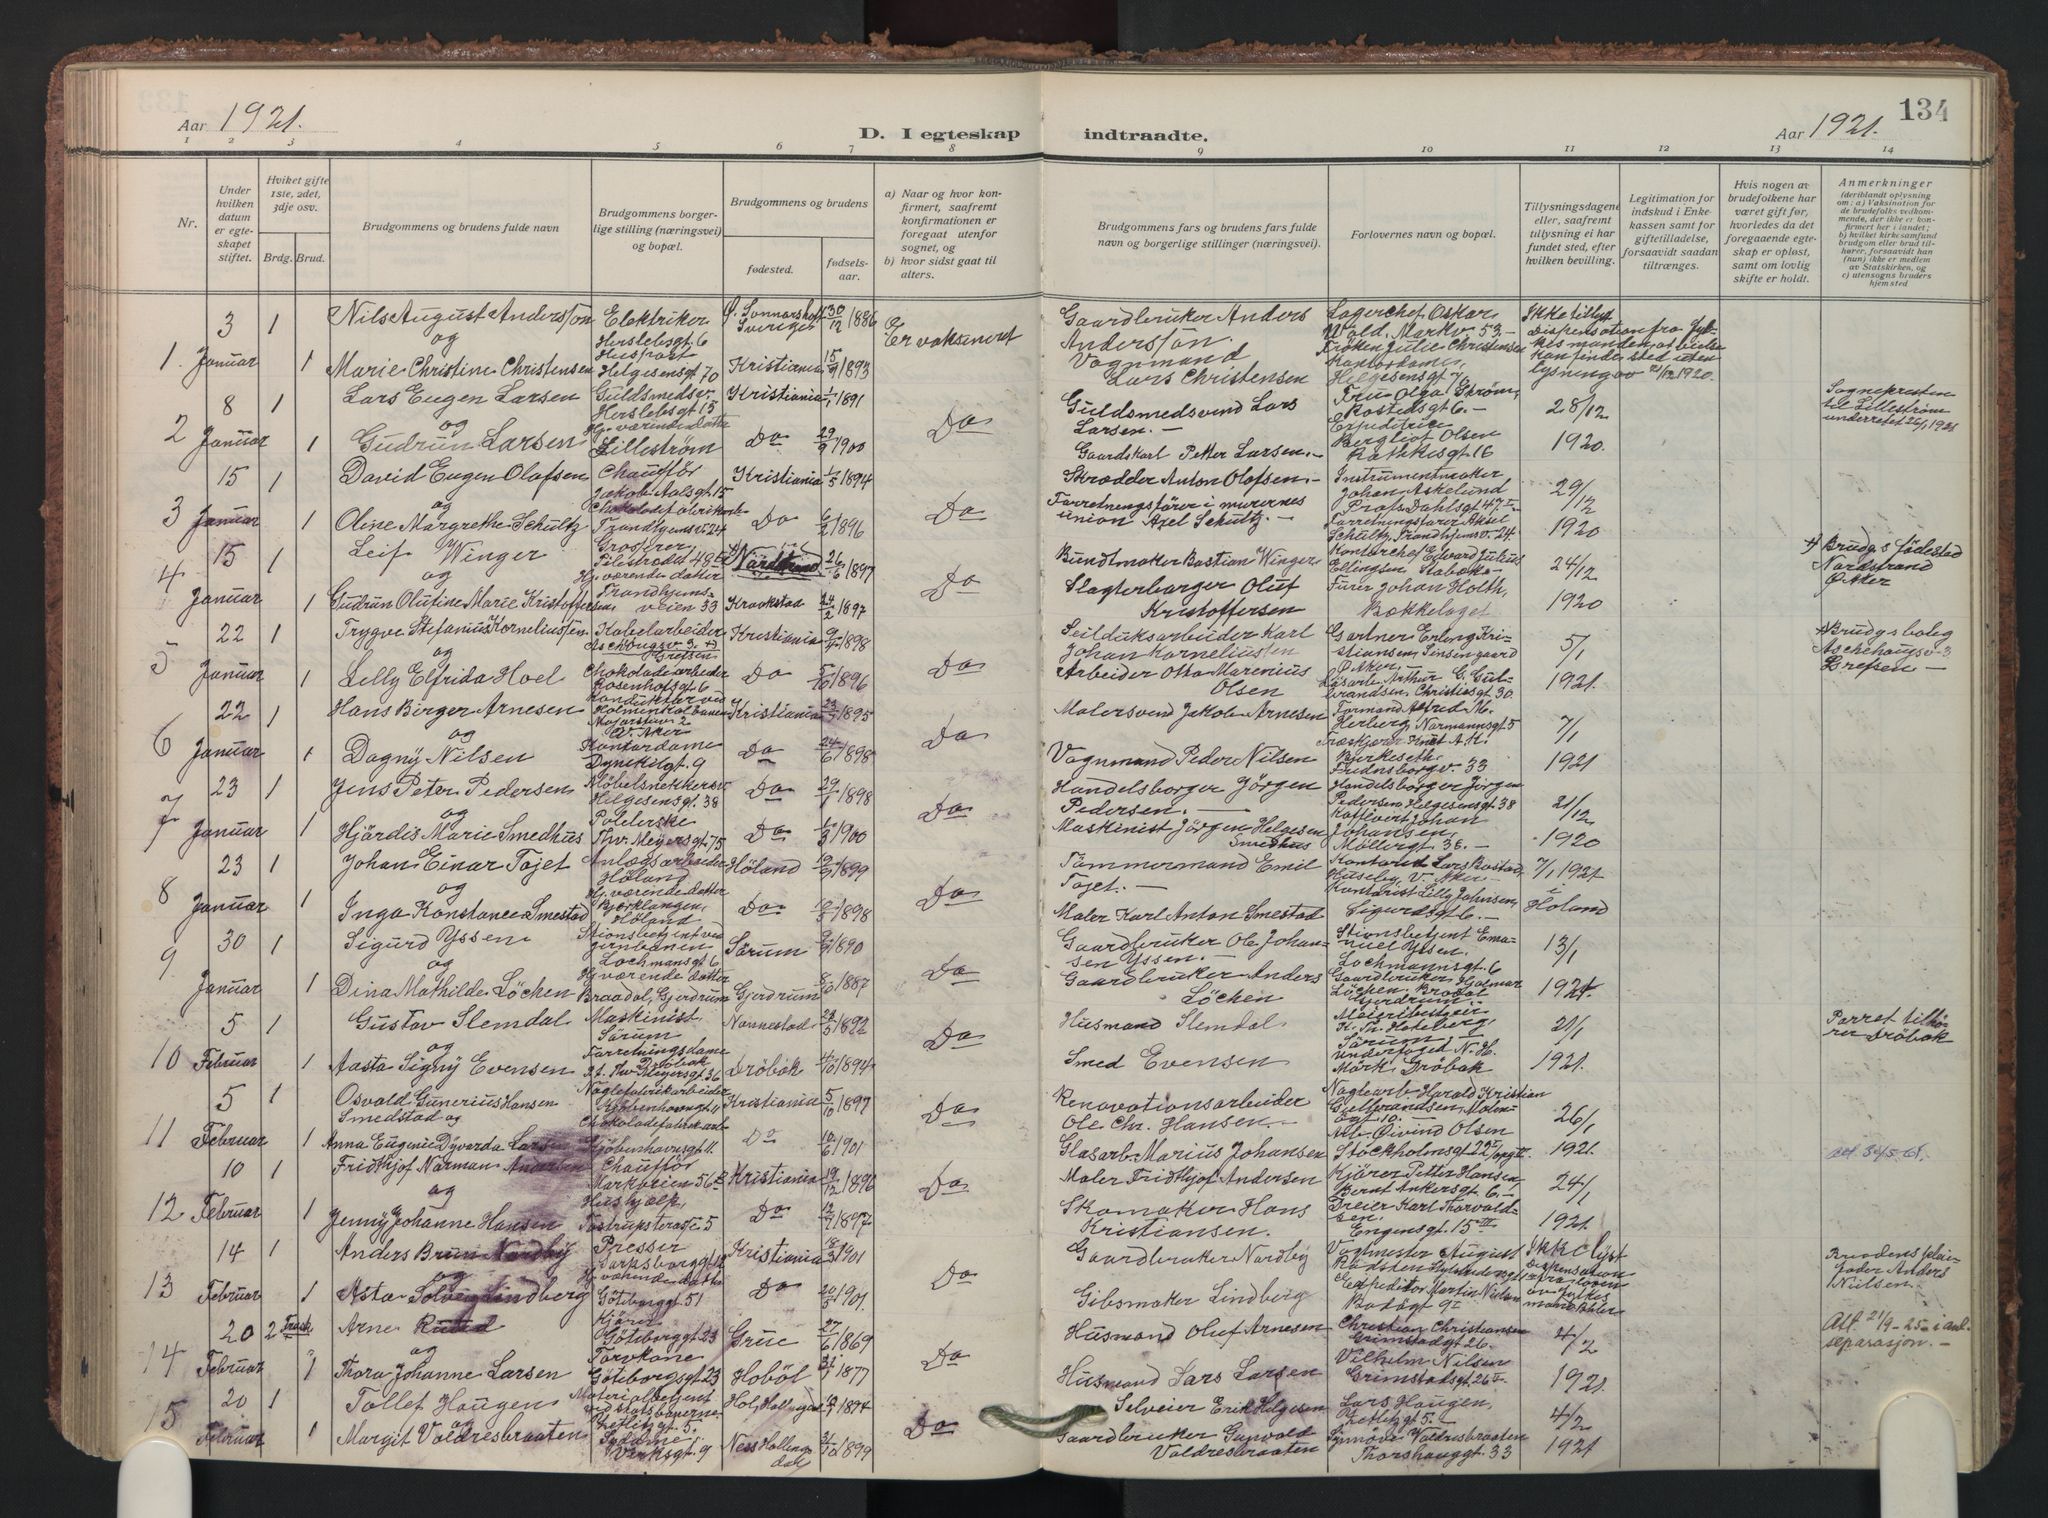 134
Aar 1921.
D. I egteskap indtraadte.
Aar 1921.
1 2 3 4 5 6 7 8 9 10 11 12 13 14
Nr.
Under hvilken datum er egteskapet stiftet.
Hviket gifte 1ste, 2det, 3dje osv.
Brdg. Brud.
Brudgommens og brudens fulde navn
Brudgommens borgerlige stilling (næringsvei) og bopæl.
Brudgommens og brudens
fødested.
fødselsaar.
a) Naar og hvor konfirmert, saafremt konfirmationen er foregaat utenfor sognet, og
b) hvor sidst gaat til alters.
Brudgommens fars og brudens fars fulde navn og borgerlige stillinger (næringsvei).
Forlovernes navn og bopæl.
Tillysningsdagene eller, saafremt tillysning ei har fundet sted, efter hvilken bevilling.
Legitimation for indskud i Enkekassen samt for giftetilladelse, forsaavidt saadan tiltrænges.
Hvis nogen av brudefolkene har været gift før, hvorledes da det foregaaende egteskap er opløst, samt om lovlig skifte er holdt.
Anmerkninger
(deriblandt oplysning om: a) Vaksination for de brudefolks vedkommende, der ikke er konfirmert her i landet; b) hvilket kirkesamfund brudgom eller brud tilhører, forsaavidt han (hun) ikke er medlem av Statskirken, og c) utensogns bruders hjemsted
1. 3 Januar 1 1
Nils August Andersson
og
Marie Christine Christensen
Elektriker
Herslebsgt 6
Helgesensgt 70
Sverige 30/12 1886
Kristiania 15/9 1893
Er vaksineret
Gaardbruker Anders
Andersson.
Vognmand
Lars Christensen
Lagerchef Oskar
Wold. Markv. 53.
Frøken Julie Christensen
Kontordame,
Ikke tillyst
Dispensation fra
2 8 Januar 1 1
Lars Eugen Larsen
og
Gudrun Larsen
Guldsmedsv.
Herslebsgt 15
Hj. værende datter
Lillestrøm
Kristiania 1/1 1891
Do 29/9 1900
Do
Guldsmedsvend Lars
Larsen.
Gaardskarl Petter Larsen.
Fru Olga Strøm,
Rostedsgt 6.
Expeditrice
Bergliot Olsen
Rathkesgt 16
28/12
1920.
Sognepresten
til Lillestrøm
underrettet 25/1 1921
3 15 Januar 1 1
David Eugen Olafsen
og
Oline Margrethe Schultz
Chauffør
Jakob Aalsgt. 15
Trondhjemsv. 24
Kristiania 1/5 1894
Do 6/2 1896
Do
Skrædder Anton Olofsen.
Forretningsfører i murernes
union Axel Schultz.
Instrumentmaker
Johan Askelund
Prof. Dahlsgt 47
Forretningsfører Aksel
Schultz, Trondhjemsv. 24
29/12
1920
4 15 Januar 1 1
Leif Winger
og
Gudrun Olufine Marie Kristoffersen
Grosserer
Pilestrædet 48
Hj. værende datter
Trondhjemsveien 53
Nordstrand 26/6 1897
Kraakstad 24/2 1897
Do
Buntmaker Bastian Winger
Slagterborger Oluf
Kristoffersen
Kontorchef Edvard Julius
Ellingsen Stabæk
Furer Johan Holth,
Bækkelaget
24/12
1920
Brudgs fødested
Nordstrand
Aker
5 22 Januar 1 1
Trygve Stefanius Korneliussen
og
Lilly Elfrida Hoel
Kabelarbeider
Grefsen
Chokoladearbeider
Rosenhofsgt 6
Kristiania 1898
Do 5/10 1896
Do
Seilduksarbeider Karl
Johan Korneliussen
Arbeider Otto Marenius
Olsen
Gartner Erling Kristiansen, Sinsengaard
Aker
Arthur G. Gulbrandsen, Christiesgt 30
5/1
1921.
Brudgs bolig
Aschehougsv. 3
Grefsen
6 22 Januar 1 1
Hans Birger Arnesen
og
Dagny Nilsen
Konduktør ved
Holmenkolbanen
Majorstuv 2
V. Aker
Kontordame
Dynekilgt. 9
Kristiania 1895
Do 24/6 1898
Do
Malersvend Jakob Arnesen
Vognmand Peder Nilsen
Formand Alfred M.
Herberg, Normannsgt 5
Bjerkeseth
33
7/1
1921
7 23 Januar 1 1
Jens Peter Pedersen
og
Hjørdis Marie Smedhus
Møbelsnekkersv
Helgesensgt. 38
Polererske
Thv. Meyersgt. 75
Do 29/1 1898
Do 1900
Do
Handelsborger Jørgen
Pedersen.
Maskinist Jørgen Helgesen
Smedhus
Handelsborger Jørgen
Pedersen, Helgesensgt 38
Johan
Johansen,
Møllergt 36.
21/12
1920
8 23 Januar 1 1
Johan Einar Tojet
og
Inga Konstance Smestad
Anlægsarbeider
Høland
Hj. værende datter
Bjørklangen,
Høland
Høland 1899
Do 1898
Do
Tømmermand Emil
Tojet.
Maler Karl Anton Smestad
Kontorist Lars Bostad,
Huseby, V. Aker
Kontorist Lilly Johnsen,
Sigurdsgt 6.
7/1 1921
i
Høland
9 30 Januar 1 1
Sigurd Yssen
og
Dina Mathilde Løchen
Stionsbetjent ved
jernbanen
Lochmansgt 6
Hj. værende datter
Braadal, Gjerdrum
Sørum 1890
Gjerdrum 1887
Do
Gaardbruker Ole Johansen Yssen.
Gaardbruker Anders
Løchen
Stionsbetjent Emanuel Yssen.
Lochmannsgt. 6
Gaardbruker Halmar
Løchen. Brodal
Gjerdrum.
13/1
1921.
10 5 Februar 1 1
Gustav Slemdal
og
Aasta Signy Evensen
Maskinist,
Sørum
Forretningsdame
Drøbak
Thv. Meyersgt 36
Nannestad 1892
Drøbak 1894
Do
Husmand Slemdal
Smed Evensen
Meieribestyrer
Sørum
Underfoged N. H.
Mørk Drøbak
21/1
1921.
Parret tilhører Drøbak
11 5 Februar 1 1
Osvald Gunerius Hansen
Smedstad og
Anna Eugenie Dyveroda
Naglefabrikarbeider
Kjøbenhavnsgt 11
Chokoladefabrikarb
Kjøbenhavnsgt 11.
Kristiania 5/10 1897
Do 10/6 1901
Do
Renovationsarbeider
Ole Chr. Hansen.
Glasarb. Marius Johansen
Naglearb. Harald Kristian
Gulbrandsen,
Arb. Øivind Olsen
Stockholmsgt 22
26/1
1921.
12 10 Februar 1 1
Fridthjof Norman Andersen
og
Jenny Johanne Hansen
Chauffør
Markveien 56
Hushjælp
5
Kristiania 19/12 1896
Do 1897
Do
Maler Fridthjof Andersen
Skomaker Hans
Kristiansen.
Kjører Petter Hansen,
Bernt Ankersgt 6.
Dreier Karl Thorvaldsen,
Engensgt. 15 III
24/1
1921.
13 14 Februar 1 1
Anders Brun Nordby
og
Asta Solveig Lindberg
Presser
Hj. værende datter
Gøteborggt 51
Kristiania 18/3 1901
Do 20/5 1901.
Do
Gaardbruker Nordby
Gibsmaker Lindberg
Vogtmester August
Expeditør Martin Nielsen
Ikke lyst
Dispensation
Brudens pleiefader Anders
Nielsen
14 20 Februar 2 1
Arne Rusted
og
Thora Johanne Larsen
Kjører
Gøteborggt 23
Torvkone
Gøteborgsgt 23
Grue 27/6 1869
Hobøl 1877
Do
Husmand Oluf Arnesen
Husmand Lars Larsen
Christian Christiansen
Grimstadgt 26.
Vilhelm Nilsen
Grimstadgt 26
4/2
1921.
separasjon.
15 20 Februar 1 1
Tollef Haugen
og
Margit Valdresbraaten
Materialbetjent
ved statsbanerne
Zetlitzgt. 5.
Verksgt. 9
Hol, Hallingdal 1894
Ness Hallingdal 31/10 1899
Do
Selveier Erik Helgesen
Gaardbruker Gunvald
Valdresbraaten
Lars Haugen,
Zetlitzgt 5.
Synnøve Valdresbraaten
Thorshauggt. 33
4/2
1921